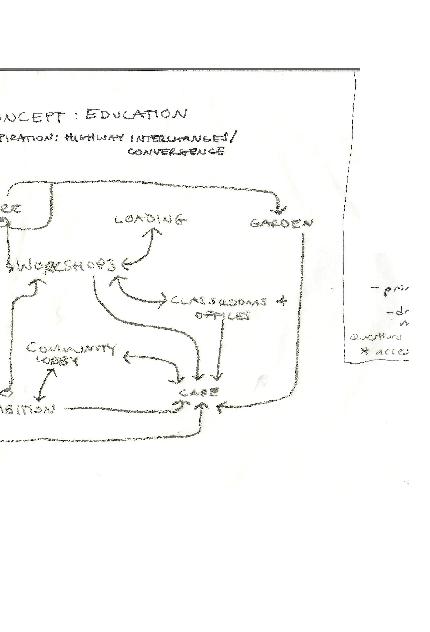 ONCEPT : EDUCATION
PIRATION: HIGHWAY INTERCHANGES/
CONVERGENCE
LOADING
GARDEN
WORKSHOPS
CLASSROOMS
OFFICES
COMMUNITY
LOBBY
CAFE
IBITION
- prir
- dr
* acces